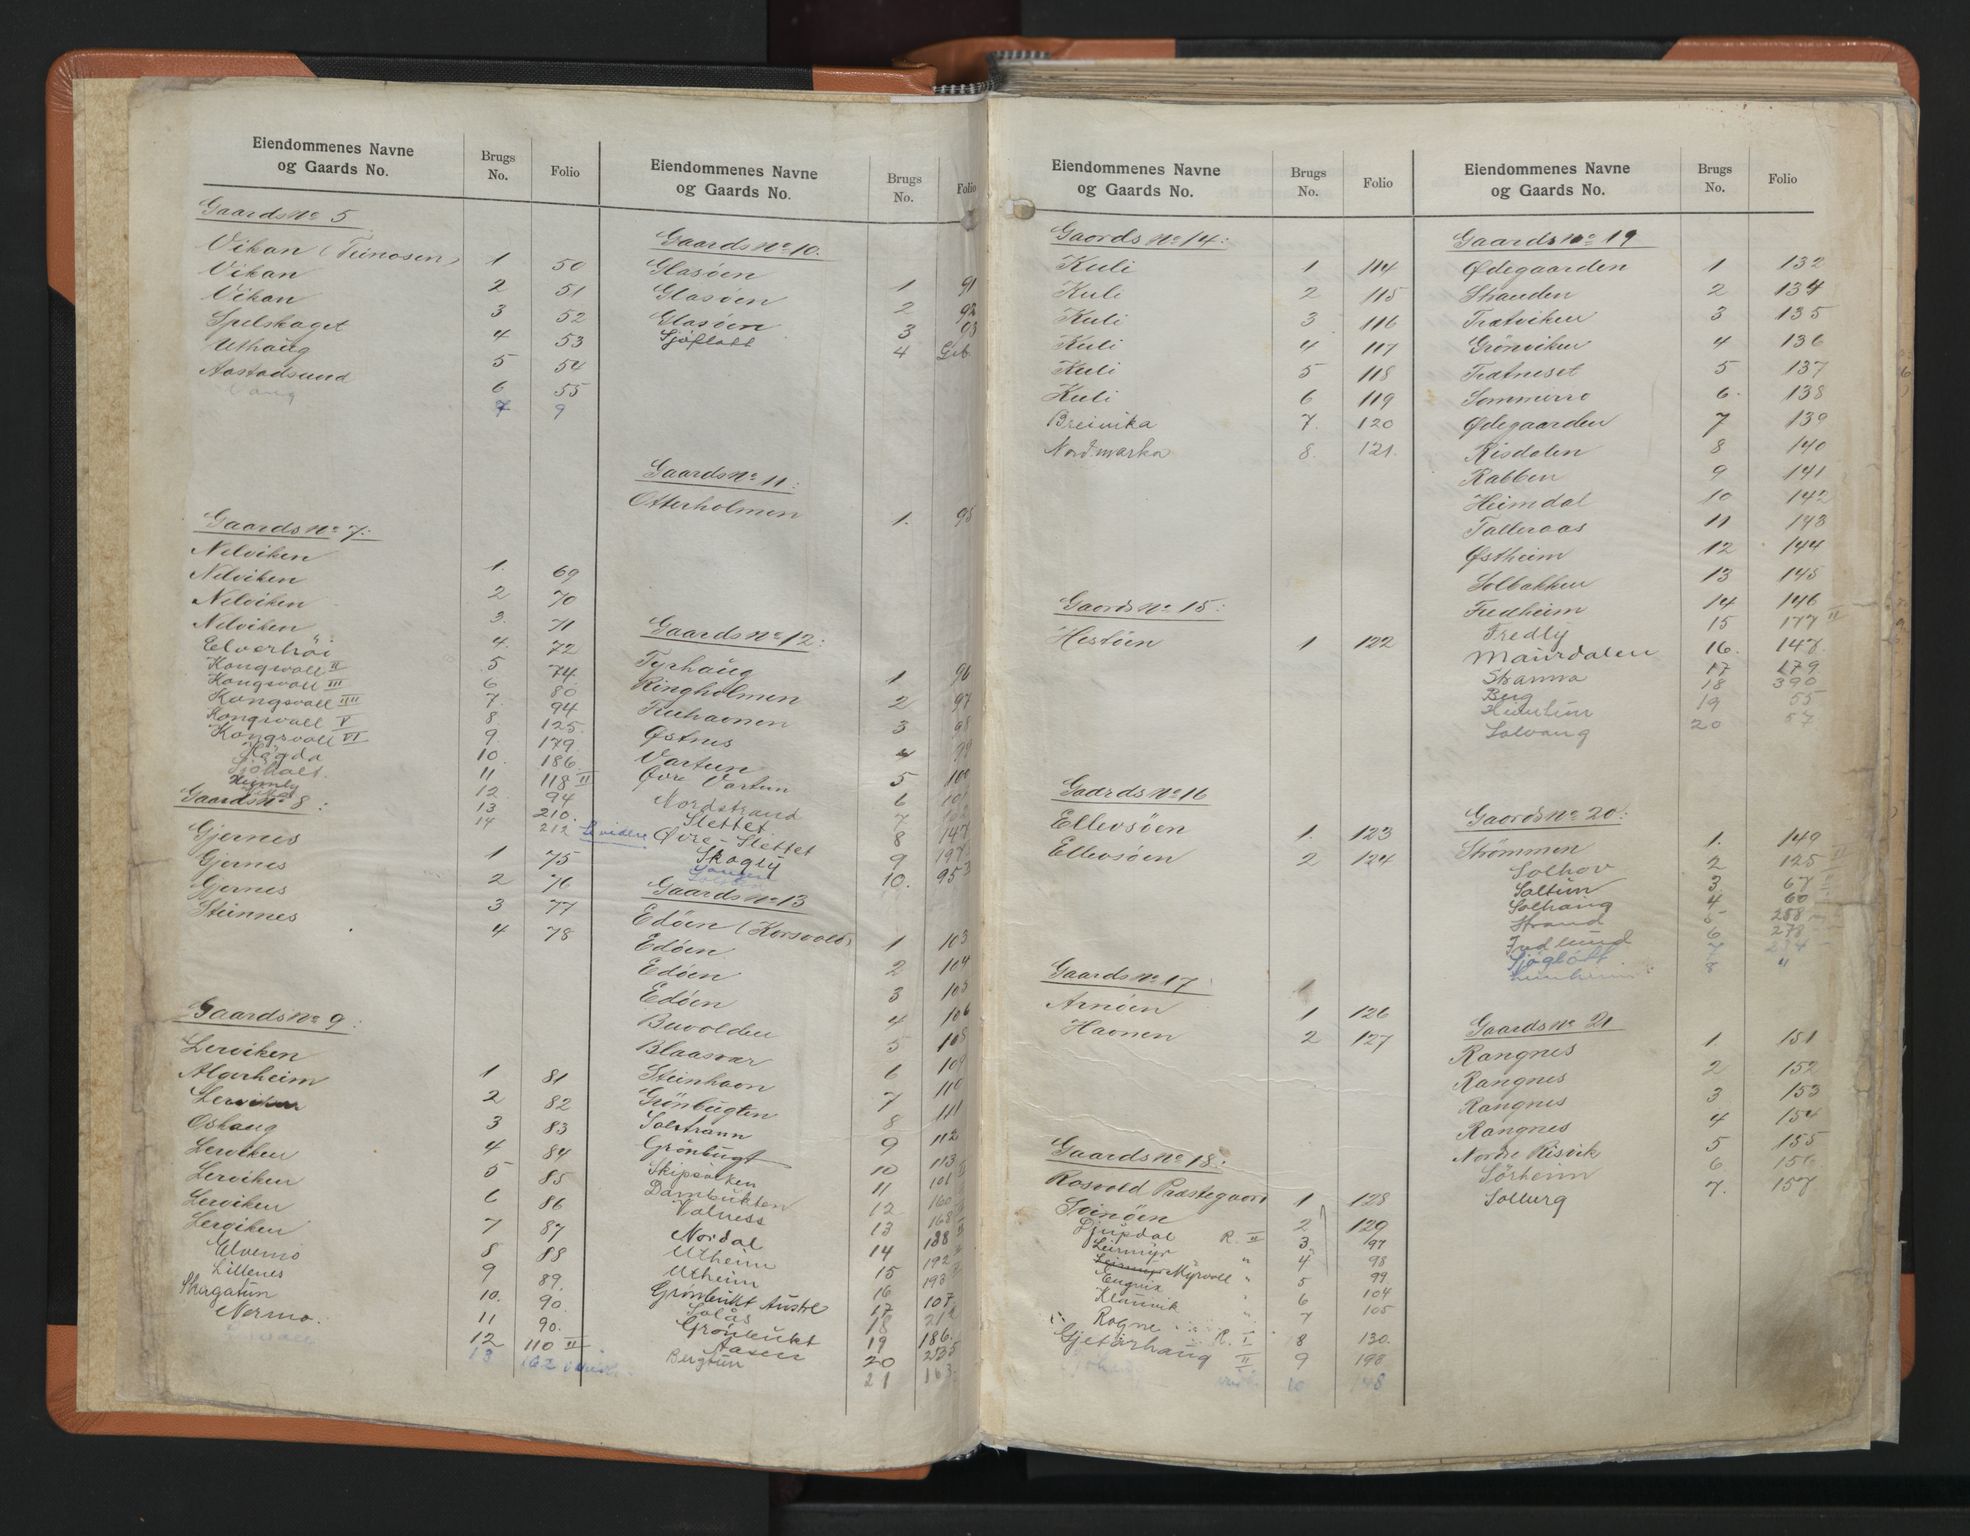 Eiendommenes Navne
og Gaards No.
Brugs
No.
Folio
Gaards No 5
Vikan (Teinosen) 1 50
Vikan 2 51
Vikan 3 52
Spelskaget 4 53
Uthaug 5 54
Aastadsund 6 55
Vang 7 9
Gaards No 7:
Nelviken 1. 69
Nelviken 2 70
Nelviken 3. 71
Nelviken 4. 72
Elverhöi 5 74
Kongsvoll II 6 80
Kongsvoll III 7. 94
Kongsvoll IIII 8. 125.
Kongsvoll V 9. 179.
Kongsvoll VI 10. 186.
Högda 11 118 II
Sjöholt. 12. 94
Heimly 13 210.
14 212 Se videre
Gaards No 8:
Gjernes 1 75
Gjernes 2 76
Gjernes 3 77
Steinnes 4 78
Gaards No 9:
Lerviken 1 81
Algerheim 2 82
Lerviken 3 83
Oshaug 4 84
Lerviken 5 85
Lerviken 6 86
Lerviken 7 87
Lerviken 8 88
Elvemo 9 89.
Lillenes 10. 90.
Skogatun 11 90.
Nermo. 12 110 II
13 162
Eiendommenes Navne
og Gaards No.
Brugs
No.
Folio
Gaards No 10.
Glasöen 1 91
Glasöen 2 92
Glasöen 3 93
Sjöflott 4
Gaards No 11:
Otterholmen 1. 95
Gaards No 12:
Tyrhaug 1 96
Ringholmen 2 97
Teehavnen 3 98
Østnes 4 99
Vartun 5 100
Øvre Vartun 6 101
Nordstrand 7 102
Slettet 8 147
Øvre-Slettet 9 197
Skogly 10. 95
Gaards No 13
Edöen (Korsvold) 1 103
Edöen 2 104
Edöen 3 105
Edöen 4 106
Buvolden 5 108
Blaasvær 6 109
Steinhaon 7 110
Grönbugten 8 111
Solstrann 9 112
Grönbugt 10 113
Skipsviken 11 101
Dambukten 12 160
Valness 13 168
Nordal 14 188
Utheim 15 192
Utheim 16 193
Grönbukt Austre 17 107
Solås 18 212
Grönbukt 19 186.
Aasen 20 235
Bergtun 21 163.
Eiendommenes Navne
og Gaards No.
Brugs
No.
Folio
Gaards No 14:
Kuli 1 114
Kuli 2 115
Kuli 3 116
Kuli 4 117
Kuli 5 118
Kuli 6 119
Breivika 7. 120
Nordmarka 8. 121.
Gaards No 15:
Hestöen 1 122
Gaards No 16
Ellevsöen 1. 123
Ellevsöen 2 124
Gaards No 17
Arnöen 1 126
Havnen 2 127
Gaards No 18:
Rosvold Præstegaard 1 128
Svinöen 2 129
Djupdal R. II 3. 97
Leirmyr " 4. 98
Myrvoll " 5 99.
Engvik " 6 104
Klauvik " 7 105
Rogne R. I 8 130.
Gjetarhaug II 9 198
10 148
Eiendommenes Navne
og Gaards No.
Brugs
No.
Folio
Gaards No 19
Ødegaarden 1 132
Stranden 2 134
Trætviken 3 135
Grönviken 4 136
Trætneset 5 137
Sommerro 6. 138
Ødegaarden 7 139
Risdalen 8 140
Rabben 9 141
Heimdal 10 142
Talleraas 11 143
Østheim 12 144
Solbakken 13 145
Fredheim 14 146
Fredly 15 177 II
Maurdalen 16. 147.
Stranna 17 179
Berg 18 390
Heimtun 19 55
Solvang 20 57
Gaards No 20:
Strömmen 1. 149
Solhov 2 125
Soltun 3 67
Solhaug 4 60
Strand 5 258
Fredlund 6 278
Sjøglött 7 234
8 "
Gaards No 21
Rangnes 1 151
Rangnes 2 152
Rangnes 3 153
Rangnes 4 154
Nordre Risvik 5 155
Sörheim 6. 156
Solberg 7. 157